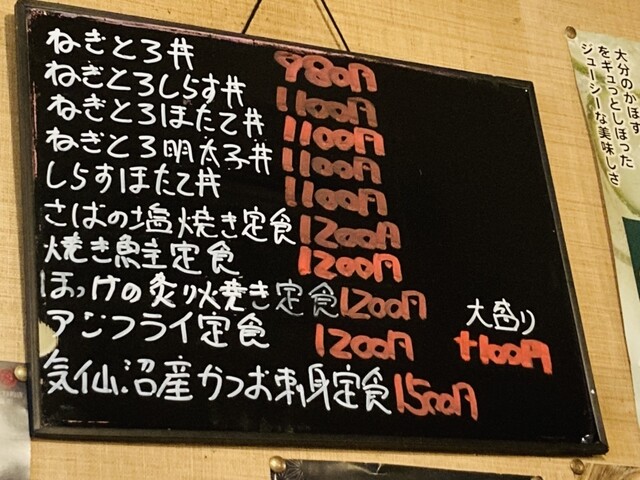 ねぎとろ丼 980円
ねぎとろしらす丼 1100円
ねぎとろほたて丼 1100円
ねぎとろ明太子丼 1100円
しらすほたて丼 1100円
さばの塩焼き定食 1200円
焼き魚定食 1200円
ほっけの炙り焼き定食 1200円
アジフライ定食 1200円
気仙沼産かつお刺身定食 1500円
大盛り
+100円
大分のかぼす
をギュっとしぼった
ジューシーな美味しさ